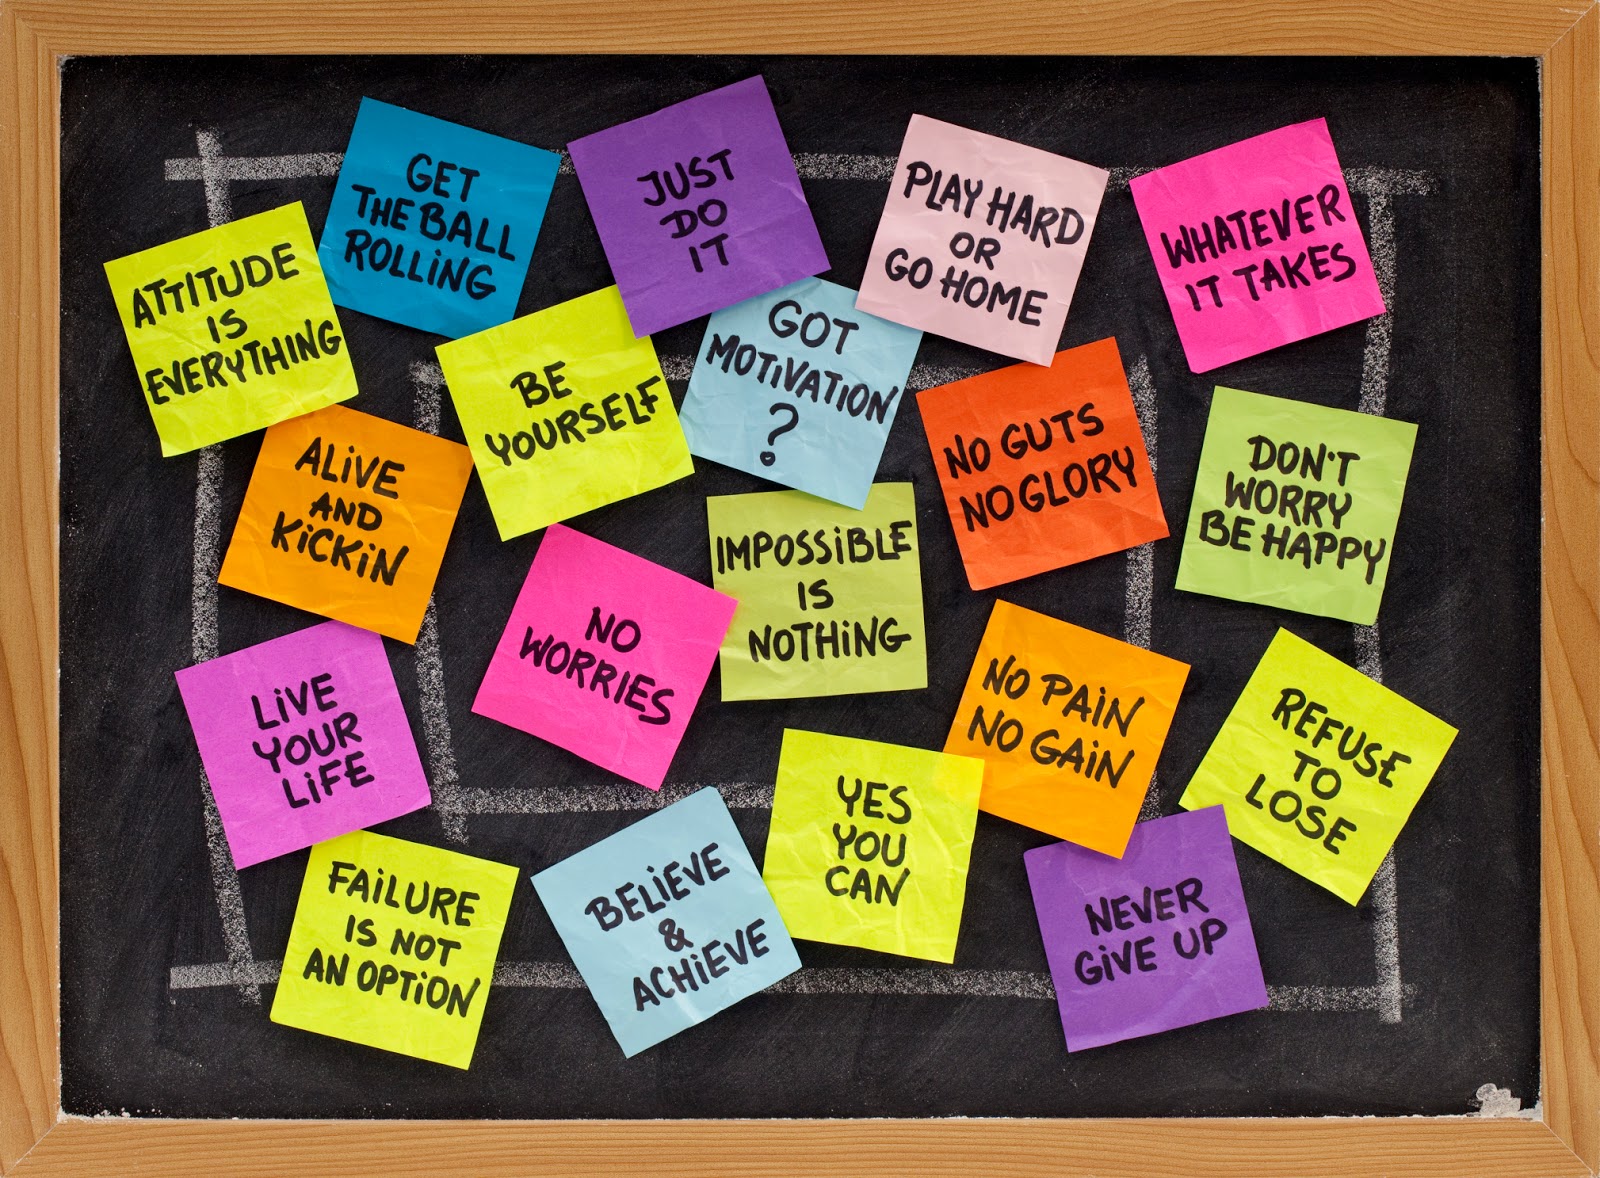 GET
THE BALL
ROLLiNG
JUST
DO
IT
PLAY HARD
OR
GO HOME
WHATEVER
IT TAKES
ATTITUDE
IS
EVERYTHING
BE
YOURSELF
GOT
MOTiVATION
?
NO GUTS
NO GLORY
DON'T
WORRY
BE HAPPY
ALiVE
AND
KiCKiN
NO
WORRIES
IMPOSSiBLE
IS
NOTHiNG
NO PAiN
NO GAiN
REFUSE
TO
LOSE
LiVE
YOUR
LiFE
YES
YOU
CAN
FAiLURE
IS NOT
AN OPTiON
BELiEVE
&
ACHiEVE
NEVER
GiVE UP